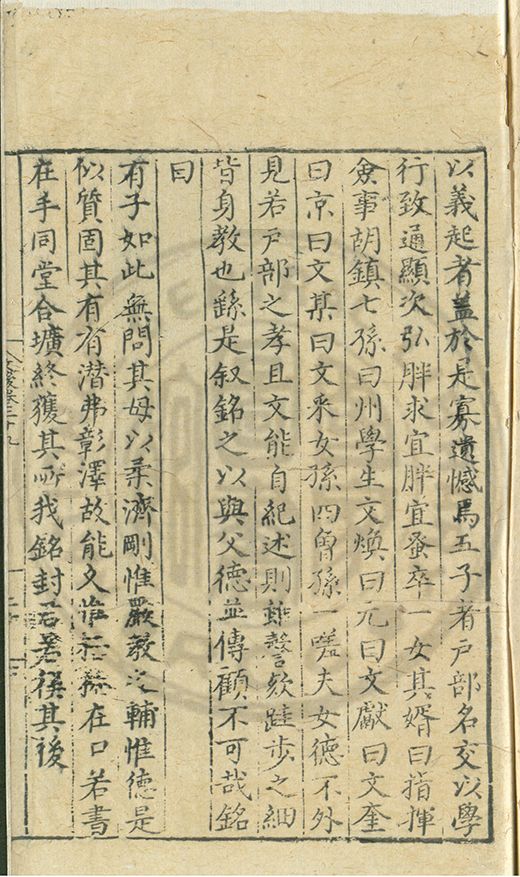 以義起者蓋於是寡遺憾焉五子者戶部名交以學
行致通顯次弘胖求宜胖宜蚤卒一女其婿曰指揮
僉事胡鎮七孫曰州學生文煥曰元曰文獻曰文奎
曰京曰文某曰文采女孫四曾孫一嗟夫女德不外
見若戶部之孝且文能自紀述則雖謦欬跬步之細
皆身教也繇是叙銘之以與父德並傳顧不可哉銘
曰
有子如此無問其母以柔濟剛惟嚴敬之輔惟德是
似質固其有有潜弗彰澤故能久惟在口若書
在手同堂合壙終獲其所我銘封石其後